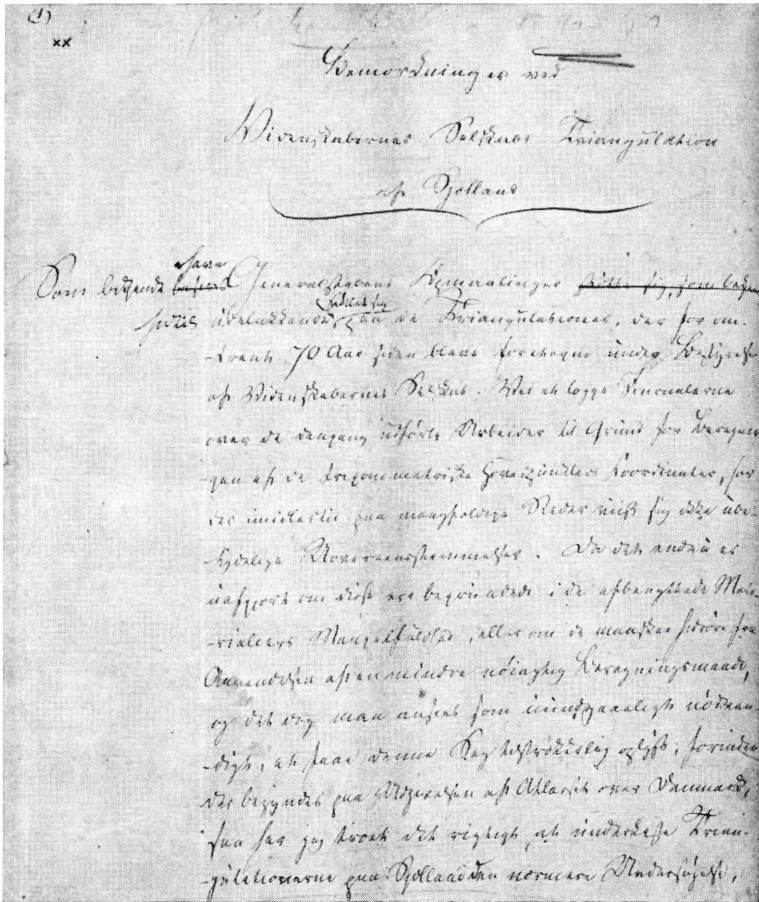 (1)
xx
Bemærkninger ved
Videnskabernes Selskabs Triangulation
af Sjælland
have
Som bekjendt Generalstabens Opmaalinger støtte sig, som bekjen
hidtil udelukkende støttet sig paa de Triangulationer, der for om-
-trent 70 Aar siden bleve foretagne under Bestyrelse
af Videnskabernes Selskab. Ved at lægge Journalerne
over de dengang udførte Arbeider til Grund for Beregnin-
gen af de trigonometriske Hovedpunkters Koordinater, har
der imidlertid paa mangfoldige Steder viist sig ikke ube-
-tydelige Uovereensstemmelser. Da det endnu er
uafgjort om disse ere begrundede i de afbenyttede Mate-
-rialiers Mangelfuldhed, eller om de maaskee hidrøre fra
Anvendelsen af en mindre nøiagtig Beregningsmaade,
og det dog maa ansees som uundgaaeligt nødven-
-digt, at faae denne Sag tilstrækkelig oplyst, forinden
der begyndes paa Udgivelsen af Atlasset over Danmark,
saa har jeg troet det rigtigt, at underkaste Trian-
-gulationerne paa Sjælland den nærmere Undersøgelse,